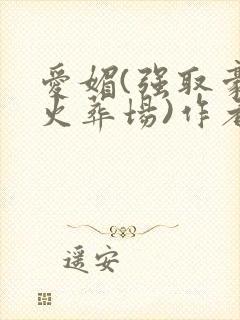 爱媚(强取豪
火葬场)作者
遥安